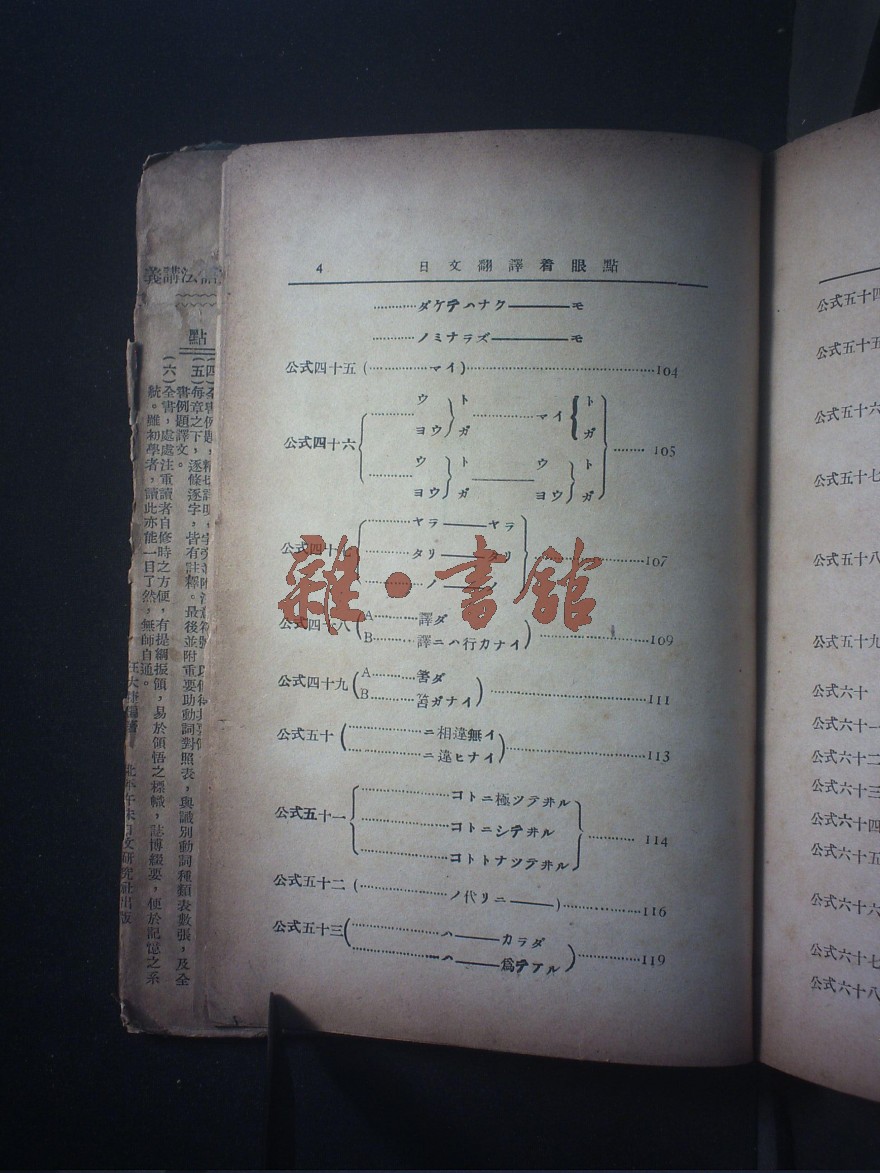 4 日文翻譯着眼點
…………ダケデハナク———モ
…………ノミナラズ———モ
公式四十五 (……………マイ)……………………………104
公式四十六
…………ウ ト …………マイ ト
ヨウ ガ ガ ……… 105
…………ウ ト ———— ウ ト
ヨウ ガ ヨウ ガ
…………ヤラ———ヤラ
公式四十七 …………タリ———タリ …………………107
…………ノ———ノ
公式四十八 A…………譯ダ
B…………譯ニハ行カナイ …………………109
公式四十九 A…………筈ダ
B…………筈ガナイ …………………………111
公式五十 …………………ニ相違無イ
…………………ニ違ヒナイ …………………113
…………………コトニ極ツテヰル
公式五十一 …………………コトニシテヰル ……… 114
…………………コトトナツテヰル
公式五十二 (……………………ノ代リニ———)……………116
公式五十三 ……………………ハ———カラダ
……………………ハ———爲デアル ……………119
雜·書館
法講義
點
(五)每章之下,逐條逐字,皆有註釋。最後並附重要助動詞對照表,與識別動詞種類表數張,及全
書例題譯文。
(六)全書,處處注重讀者自修時之方便,有提綱振領,易於領悟之標幟,誌博綴要,便於記憶之系
統。雖初學者,讀此亦能一目了然,無師自通。
公式五十四
公式五十五
公式五十六
公式五十七
公式五十八
公式五十九
公式六十
公式六十一
公式六十二
公式六十三
公式六十四
公式六十五
公式六十六
公式六十七
公式六十八